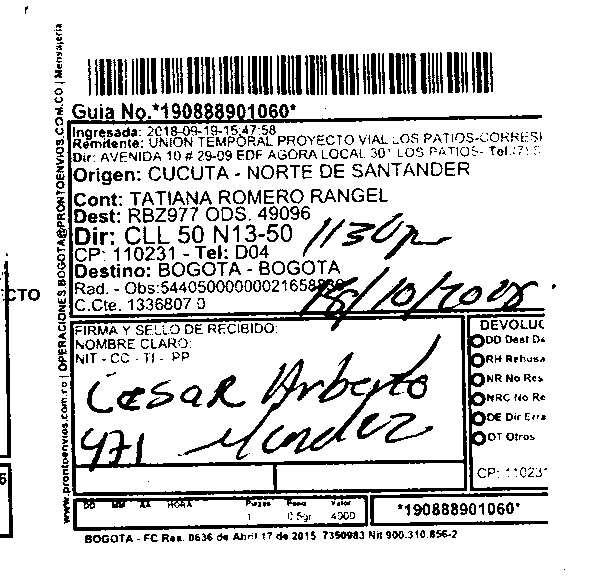 Guia No.*190888901060*
Ingresada: 2018-09-19-15:47:58
Remitente: UNION TEMPORAL PROYECTO VIAL LOS PATIOS-CORRESI
Dir: AVENIDA 10 # 29-09 EDF AGORA LOCAL 301 LOS PATIOS- Tel:
Origen: CUCUTA - NORTE DE SANTANDER
Cont: TATIANA ROMERO RANGEL
Dest: RBZ977 ODS. 49096
Dir: CLL 50 N13-50
1130p
CP: 110231 - Tel: D04
Destino: BOGOTA - BOGOTA
Rad. - Obs:544050000000021658
C.Cte. 1336807 0
CTO
FIRMA Y SELLO DE RECIBIDO:
NOMBRE CLARO:
NIT - CC - TI - PP
Cesar Arberto
471 Mendez
DEVOLUC
DD Dest De
RH Rehusa
NR No Res
NRC No Re
DE Dir Erra
OT Otros
CP: 110231
DD MM AA HORA
Piezas Peso Valor
1 0.5gr 4900
*190888901060*
BOGOTA - FC Res. 0636 de Abril 17 de 2015 7350983 Nit 900.310.856-2
www.prontoenvios.com.co | OPERACIONES.BOGOTA@PRONTOENVIOS.COM.CO | Mensajeria